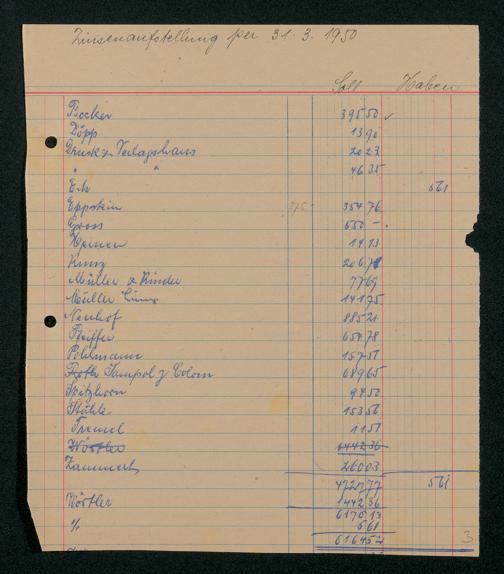 Zinsenaufstellung per 31. 3. 1950
Soll Haben
Becker 395 50
Döpp 13 90
Druck- Verlagshaus 20 23
" " 46 35
Erb 5 61
Eppstein 375.- 354 76
Gross 650 -
14 13
Kunz 206 78
Müller & Kinder 77 69
Müller 141 75
Neuhof 885 21
Pfeiffer 654 78
Pohlmann 157 51
Roth Sampol y Colom 689 65
Spitzhorn 94 50
Stähle 153 56
Tremel 11 51
Wörtler 1442 36
Zammert 260 03
4727 77 5 61
Wörtler 1442 36
6170 13
% 5 61
6164 52
3